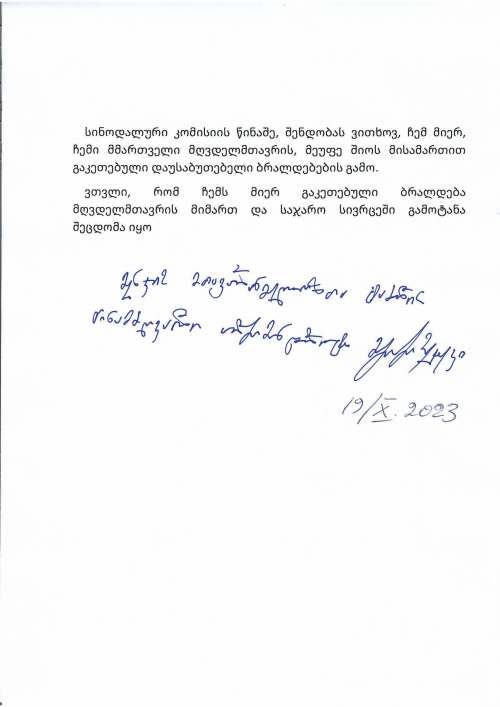 სინოდალური კომისიის წინაშე, შენდობას ვითხოვ, ჩემ მიერ,
ჩემი მმართველი მღვდელმთავრის, მეუფე შიოს მისამართით
გაკეთებული დაუსაბუთებელი ბრალდებების გამო.
ვთვლი, რომ ჩემს მიერ გაკეთებული ბრალდება
მღვდელმთავრის მიმართ და საჯარო სივრცეში გამოტანა
შეცდომა იყო
წინამძღვარი
19/X. 2023